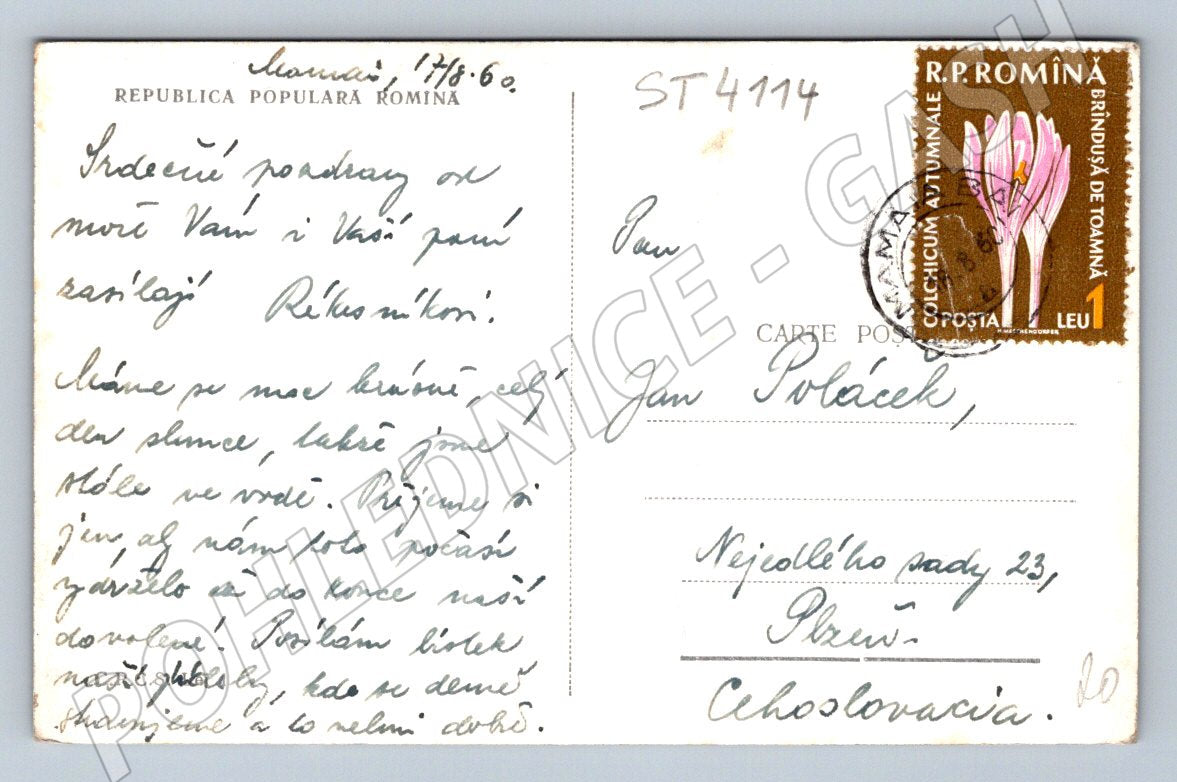 Mamaia, 17/8.60.
REPUBLICA POPULARĂ ROMÎNĂ
Srdečné pozdravy od
moře Vám i Vaší paní
zasílají
Máme se moc krásně, celý
den slunce, takže jsme
stále ve vodě. Přejeme si
jen, aby nám toto počasí
vydrželo až do konce naší
dovolené! Posílám lístek
naší jídelny, kde se denně
stravujeme a to velmi dobře.
ST 4114
R.P.ROMÎNĂ
COLCHICUM AUTUMNALE
BRÎNDUȘĂ DE TOAMNĂ
POȘTA
LEU 1
MAMAIA BĂI
8 60
Pan
CARTE POȘ
Jan Poláček,
Nejedlého sady 23,
Plzeň.
Cehoslovacia.
20
POHLEDNICE - GASH